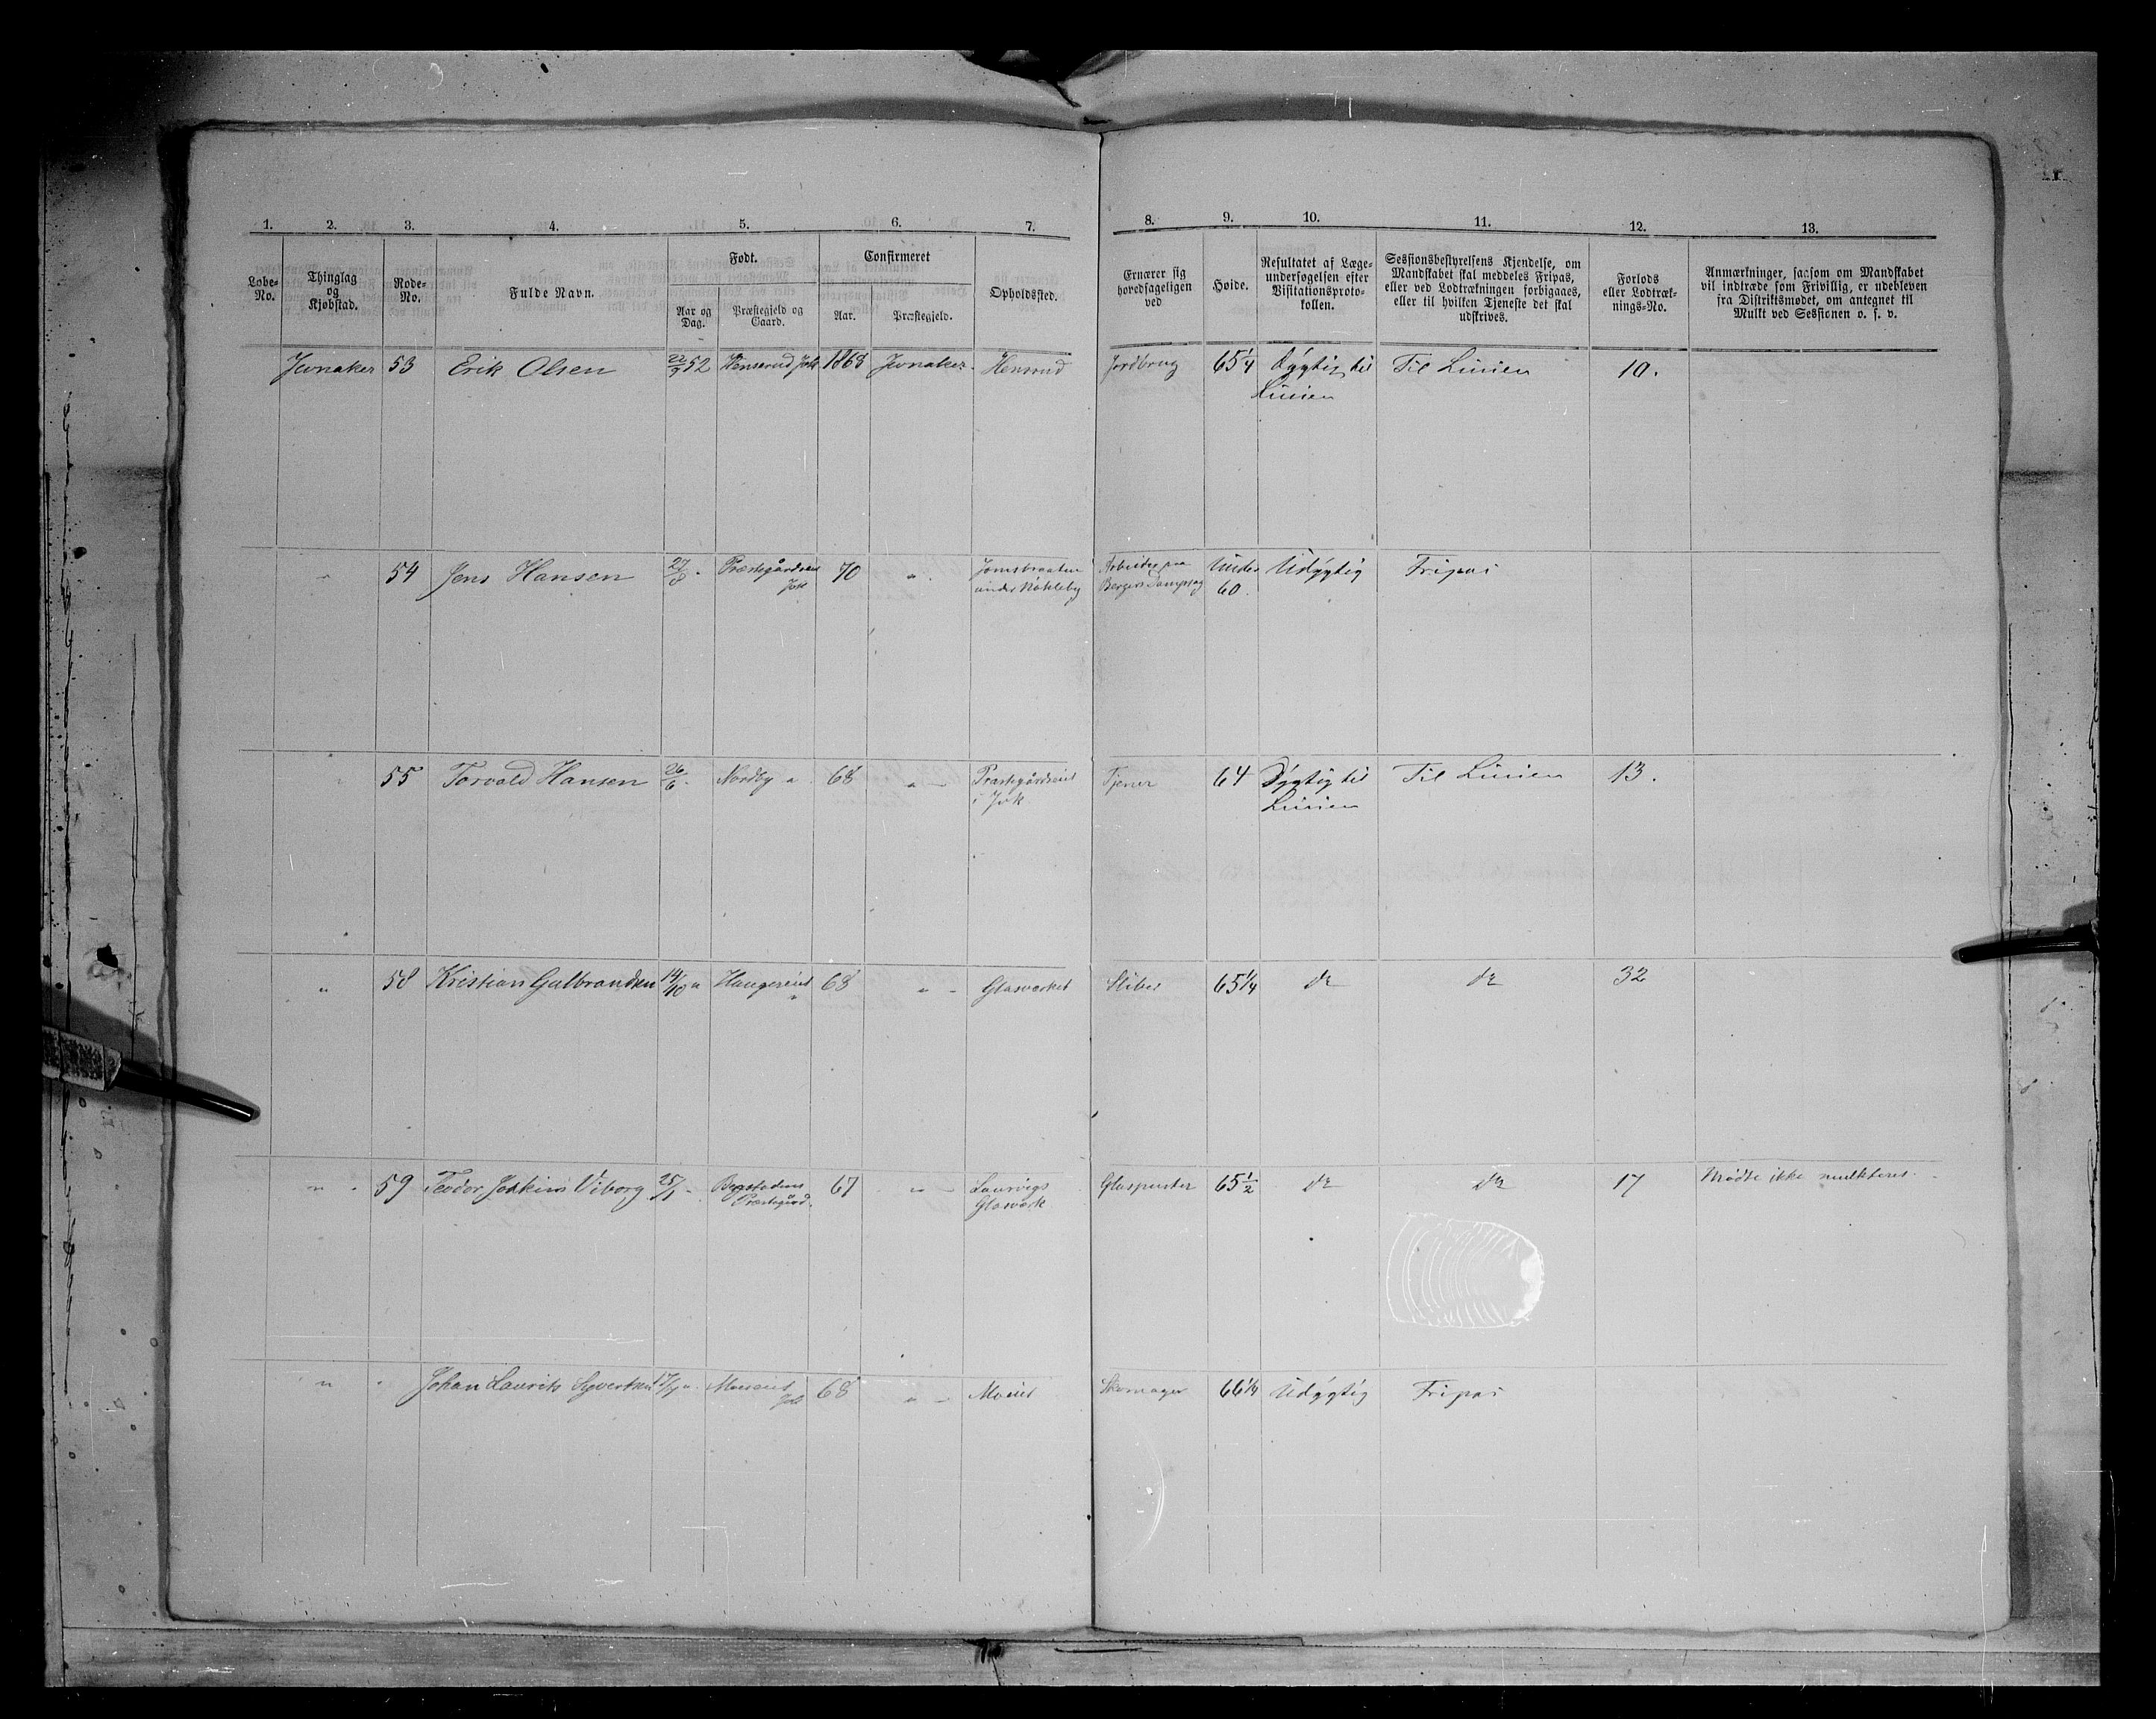 1. 2. 3. 4. 5. 6. 7. 8. 9. 10. 11. 12. 13.
Løbe-No.
Thinglag og Kjøbstad.
Rode-No.
Fulde Navn.
Født.
Aar og Dag.
Præstegjeld og Gaard.
Confirmeret
Aar.
Præstegjeld.
Opholdssted.
Ernærer sig hovedsageligen ved
Høide.
Resultatet af Læge-undersøgelsen efter Visitationsproto-kollen.
Sessionsbestyrelsens Kjendelse, om Mandskabet skal meddeles Fripas, eller ved Lodtrækningen forbigaaes, eller til hvilken Tjeneste det skal udskrives.
Forlods eller Lodtræk-nings-No.
Anmærkninger, saasom om Mandskabet vil indtræde som Frivillig, er udebleven fra Distriktsmødet, om antegnet til Mulkt ved Sessionen o. s. v.
Jevnaker 53 Erik Olsen 22/9 52 Henserud Jvk 1868 Jevnaker. Hensrud Jordbrug 65 1/4 Dygtig til Til Linien 10.
Linien
" 54 Jens Hansen 27/8 " Præstegårdseiet 70 " Arbeider paa Under Udygtig Fripas
Jvk under Bergers Dampsag 60.
" 55 Torvald Hansen 26/6 " Nordby " 68 " Præstegårdseiet Tjener 64 Dygtig til Til Linien 13.
i Jvk Linien
" 58 Kristian Gulbrandsen 14/10 " Haugereiet 68 " Glasværket Sliber 65 1/4 do do 32
"
" 59 Teodor Joakim Viborg 25/1 " 67 " Laurvigs Glaspuster 65 1/2 do do 17 Mødte ikke mulkteret.
Præstegård. Glasværk
" " Johan Laurits Syvertsen " Moeseiet 68 " Moeiet Skomager 66 1/4 Udygtig Fripas
Jvk